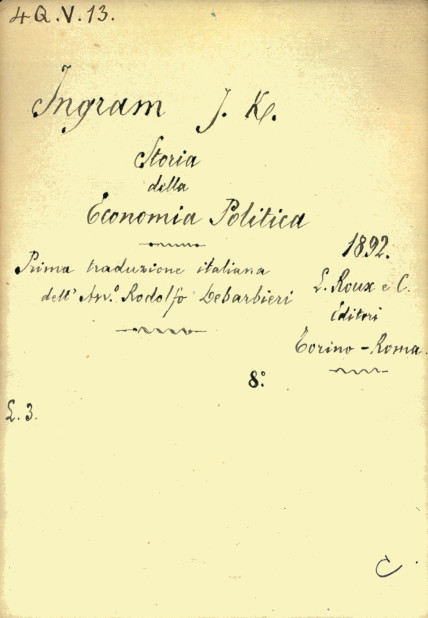 4 Q. V. 13.
Ingram J. K.
Storia
della
Economia Politica
1892.
Prima traduzione italiana
dell' Avv.º Rodolfo Debarbieri
L. Roux e C.
Editori
Torino - Roma.
8.º
L. 3.
C.